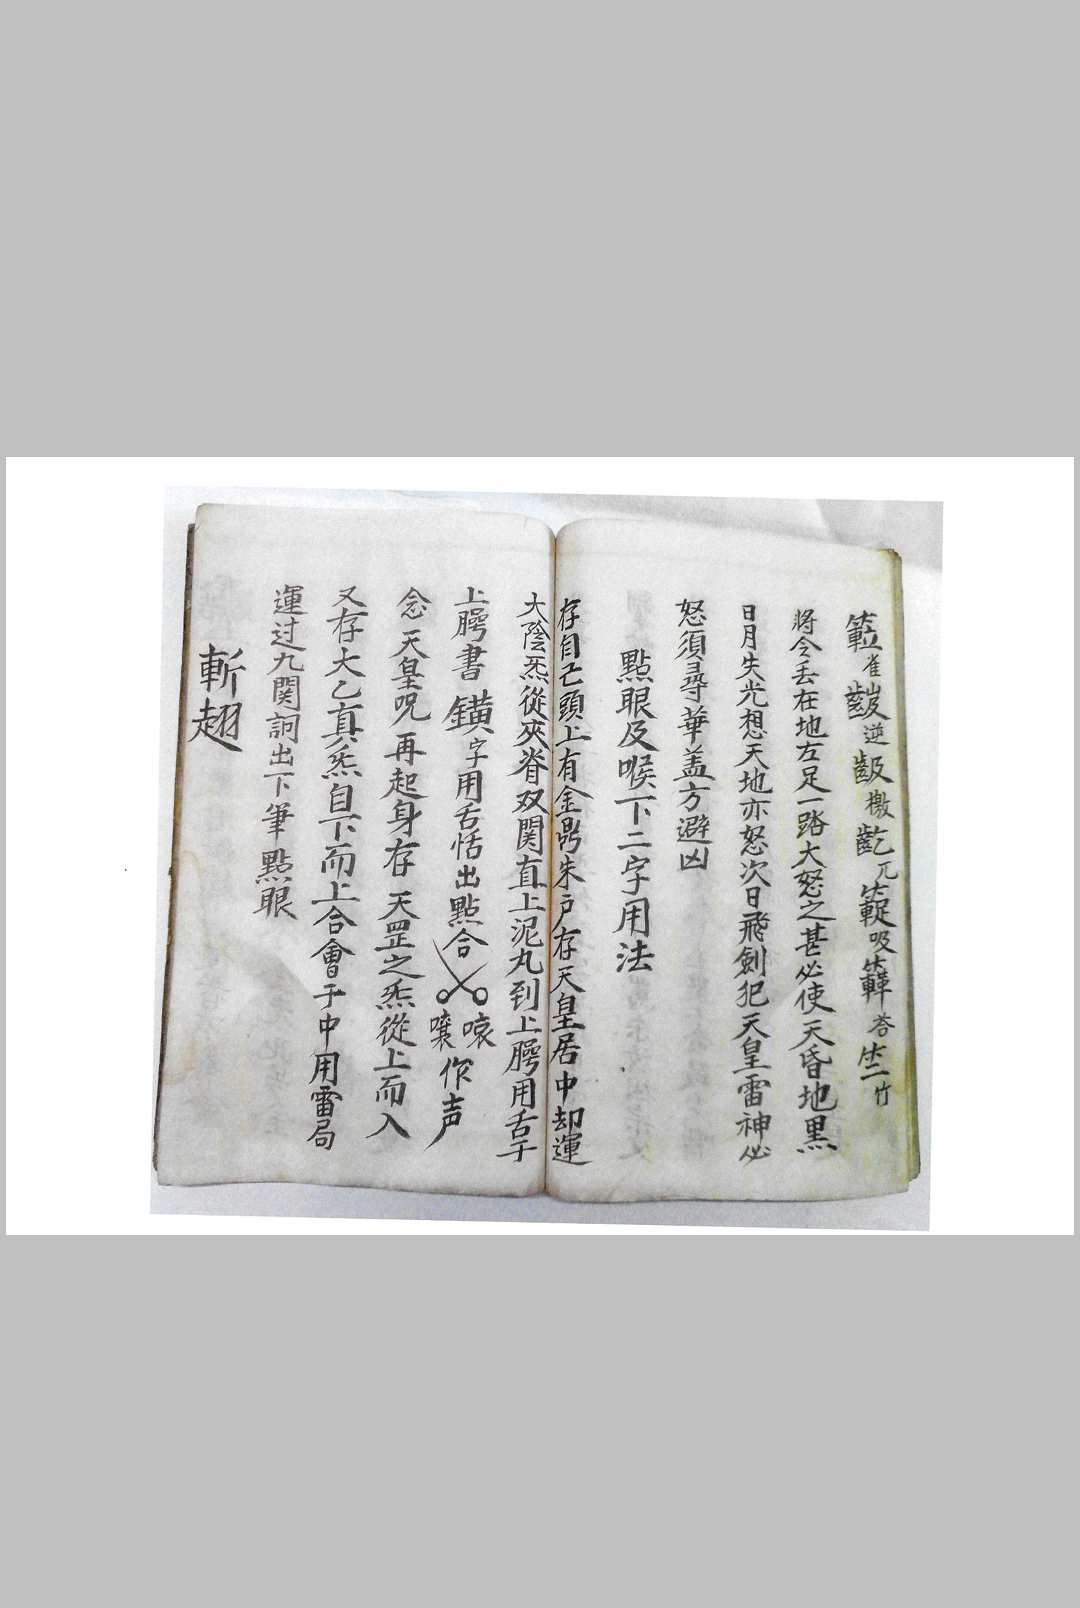 雀逆檄兀吸答竹
將令丢在地左足一踏大怒之甚必使天昏地黑
日月失光想天地亦怒次日飛劍犯天皇雷神必
怒須尋華盖方避凶
點眼及喉下二字用法
存自己頭上有金鼎朱户存天皇居中却運
大陰炁從夾脊双関直上泥丸到上腭用舌于
上腭書鐄字用舌恬出點合
喰
嚷
作声
念天皇呪再起身存天罡之炁從上而入
又存大乙真炁自下而上合會于中用雷局
運过九関詞出下筆點眼
斬趐